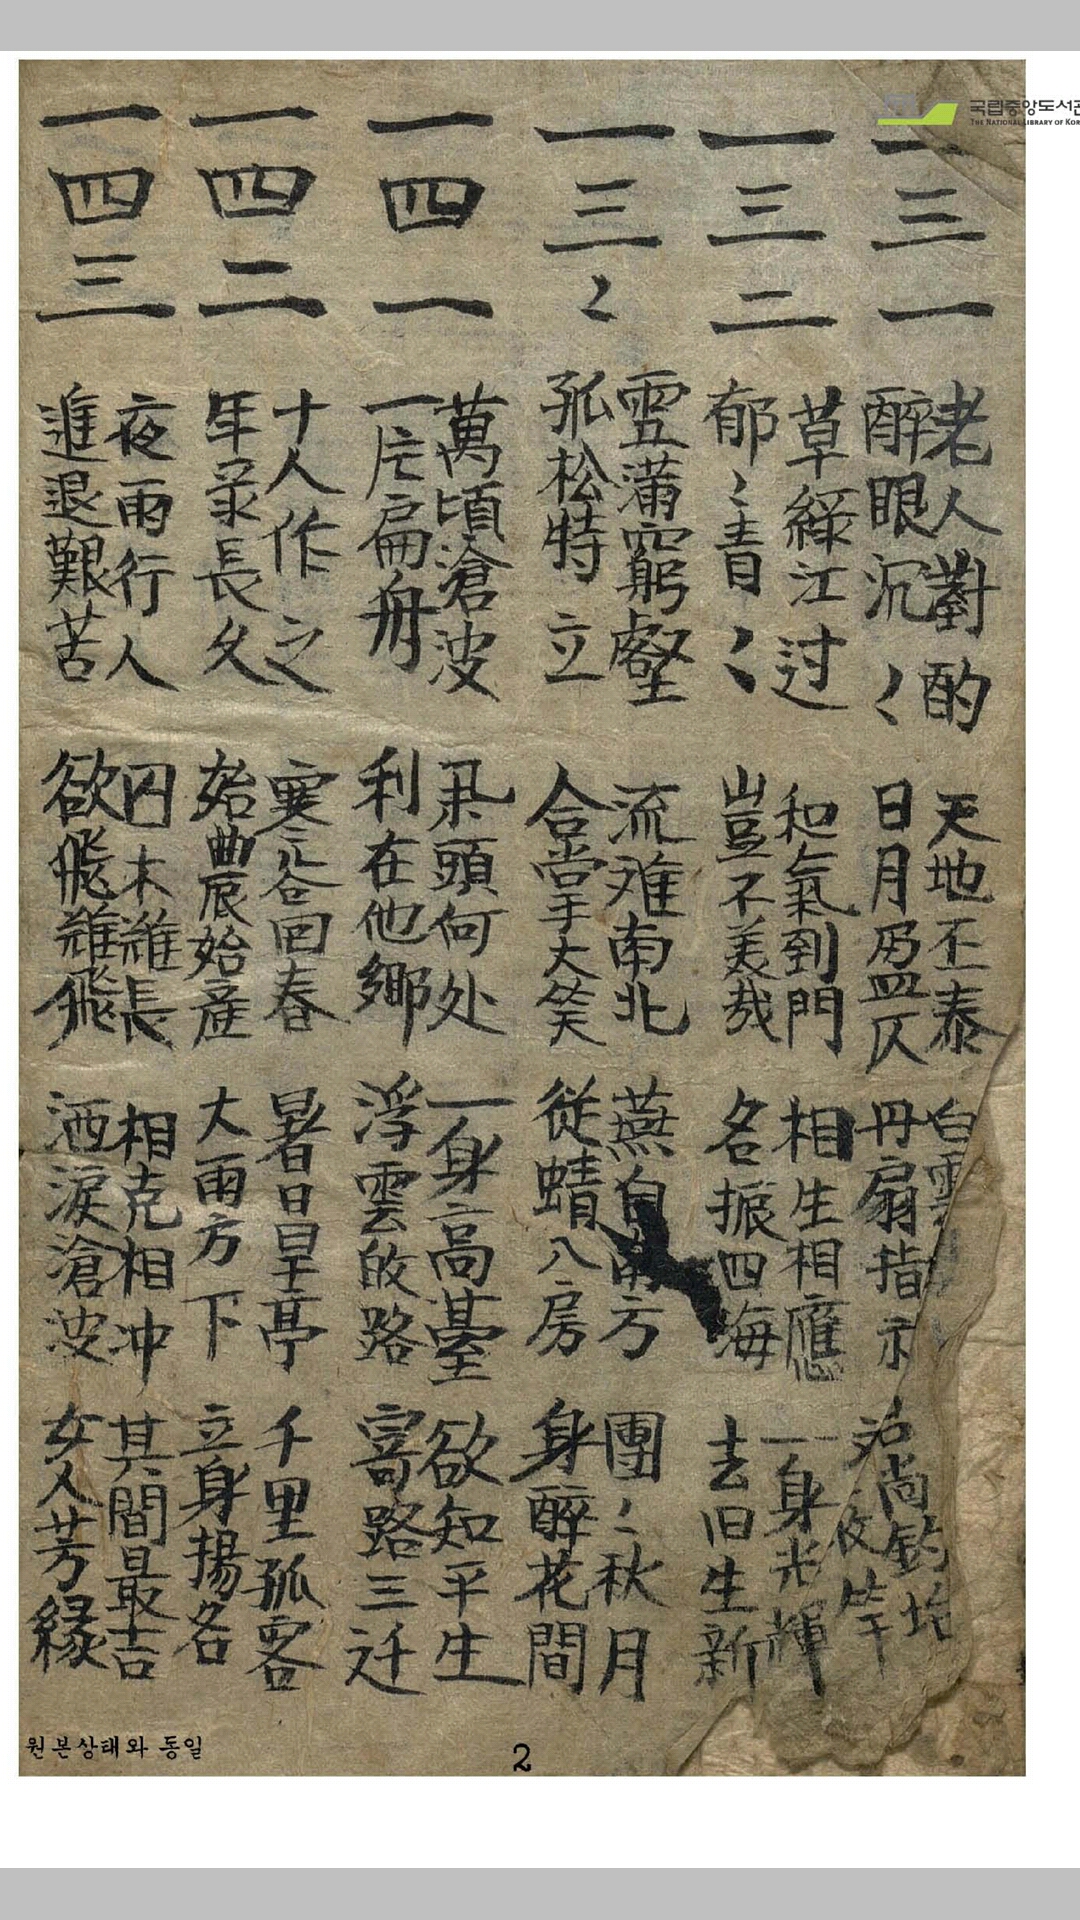 국립중앙도서관
THE NATIONAL LIBRARY OF KOR
一三一
老人對酌
醉眼沉〻
天地丕泰
日月昷仄
白雲
丹扇指示
尚釣
一三二
草綠江过
郁〻青〻
和氣到門
豈不美哉
相生相應
名振四海
一身光輝
去旧生新
一三〻
雪滿窮壑
孤松特立
流难南北
合掌大笑
燕自南方
從蜻八房
團〻秋月
身醉花間
一四一
萬頃滄波
一片扁舟
何处
利在他鄉
一身高臺
浮雲路
欲知平生
寄路三迁
一四二
十人作之
年录長久
寒谷回春
始農始産
暑日旱亭
大雨方下
千里孤客
立身揚名
一四三
夜雨行人
進退艱苦
囚木難長
欲飛難飛
相克相冲
洒淚滄波
其間最吉
女人芳緣
원본상태와 동일
2